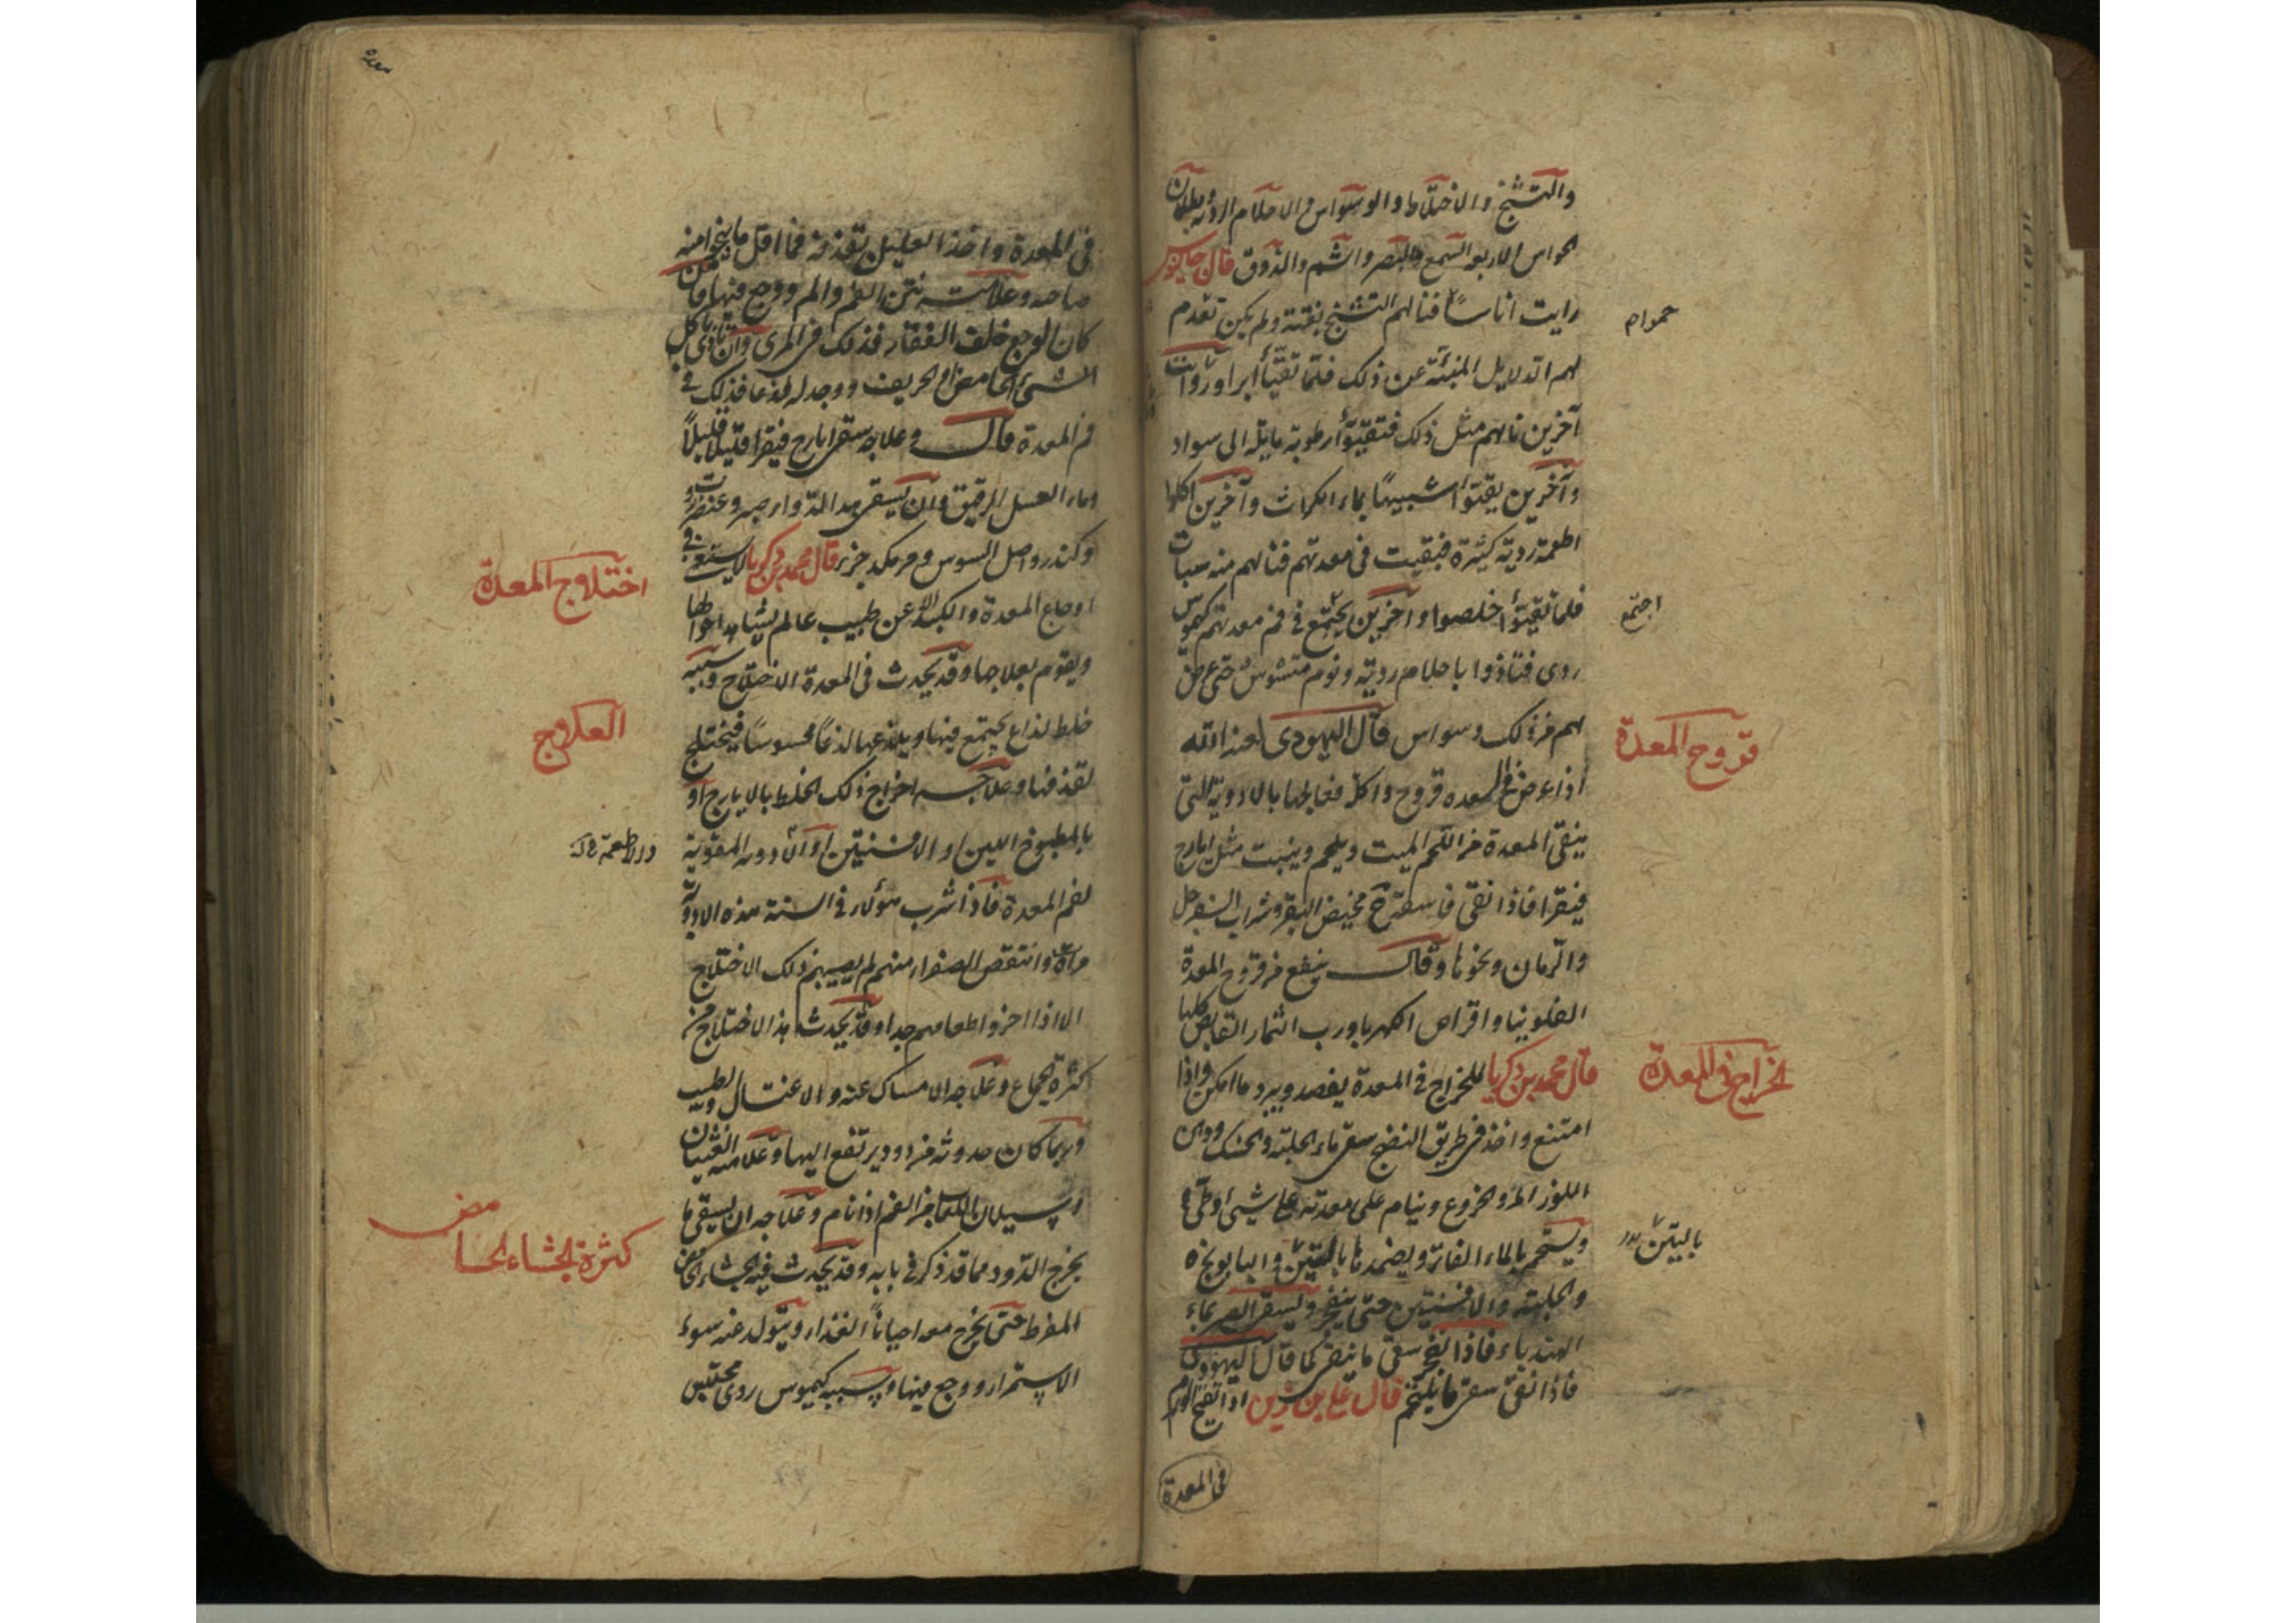 والتشنج والاختلاط والوسواس والاحلام الردية وبطلان
الحواس الاربع السمع والبصر والشم والذوق قال جالينوس
رايت اناسًا فنالهم التشنج بغتة ولم يكن تقدم
لهم الدلايل المنبئة عن ذلك فلما تقيأ ابراوا وات
آخرين نالهم مثل ذلك فتقيؤا رطوبة مايلة الى سواد
وآخرين يقيؤا شبيهًا بماء الكراث وآخرين اكلوا
اطعمة ردية كثيرة فبقيت فى معدتهم فنالهم منه سبات
فلما تقيؤا خلصوا وآخرين يجتمع فى فم معدتهم كيموس
ردى فتاذوا باحلام ردية ونوم متشوش حتى عرض
لهم من ذلك وسواس قال اليهودى لعنه الله
اذا عرض فى المعدة قروح واكلة فعالجها بالادوية التى
ينقى المعدة من اللحم الميت ويلحم وينبت مثل ايارج
فيقرا فاذا نقى فاسقه مخيض البقر وشراب السفرجل
والرمان ونحوها وقال ينفع من قروح المعدة
الفلونيا واقراص الكهربا ورب الثمار القابض كلها
قال محمد بن زكريا للخراج فى المعدة يفصد ويبرد ما امكن واذا
امتنع واخذ فى طريق النضج سقى ماء الحلبة والحسك ودهن
اللوز المر والخروع وينام على معدته على شئ وطئ
ويستحم بالماء الفاتر ويضمدها بالتين والبابونج
والحلبة والافسنتين حتى ينفجر ويسقى الصبر بماء
الهندباء فاذا انفجر سقى ما ينقى كما قال اليهودى
فاذا نقى سقى ما يلحم قال على بن ربن اذا انفتح الورم
فى المعدة
اجتمع
قروح المعدة
الخراج فى المعدة
بالتين
فى المعدة واخذ العليل بقذفه فما اقل ما ينجوا منه
صاحبه وعلامته نتن الفم والم ووجع فيها فان
كان الوجع خلف الفقار فذلك فى المرى وان تاذى باكل
الشئ الحامض او الحريف ووجد له لذعا فذلك فى
فم المعدة قال وعلاجه سقى ايارج فيقرا قليلا قليلاً
وماء العسل الرقيق وان يسقى هذا الدواء صبر وعنزروت
وكندر واصل السوس من كل جزء قال محمد بن زكريا لا يستغنى فى
اوجاع المعدة والكبد عن طبيب عالم يشاهد احوالها
ويقوم بعلاجها وقد يحدث فى المعدة الاختلاج وسببه
خلط لذاع يجتمع فيها ويلذعها لذعًا محسوسًا فيختلج
لقذفها وعلاجه اخراج ذلك الخلط بالايارج او
بالمطبوخ اللين او الافسنتين او الادوية المقوية
لفم المعدة فاذا شرب هؤلاء فى السنة هذه الادوية
مرة وانتقص الصفراء منهم لم يصيبهم ذلك الاختلاج
الا اذا اخروا طعامهم جدا وقد يحدث هذا الاختلاج من
كثرة الجماع وعلاجه الامساك عنه والاغتسال والطيب
وربما كان حدوثه من دود يرتفع اليها وعلامته الغثيان
وسيلان اللعاب من الفم اذا نام وعلاجه ان يسقى ما
يخرج الدود مما قد ذكر فى بابه وقد يحدث فيه الجشاء الحامض
المفرط حتى يخرج معه احياناً الغذاء ويتولد عنه سوء
الاستمراء ووجع فيها وسببه كيموس ردى محتبس
اختلاج المعدة
العلاج
كثرة الجشاء الحامض
معدة